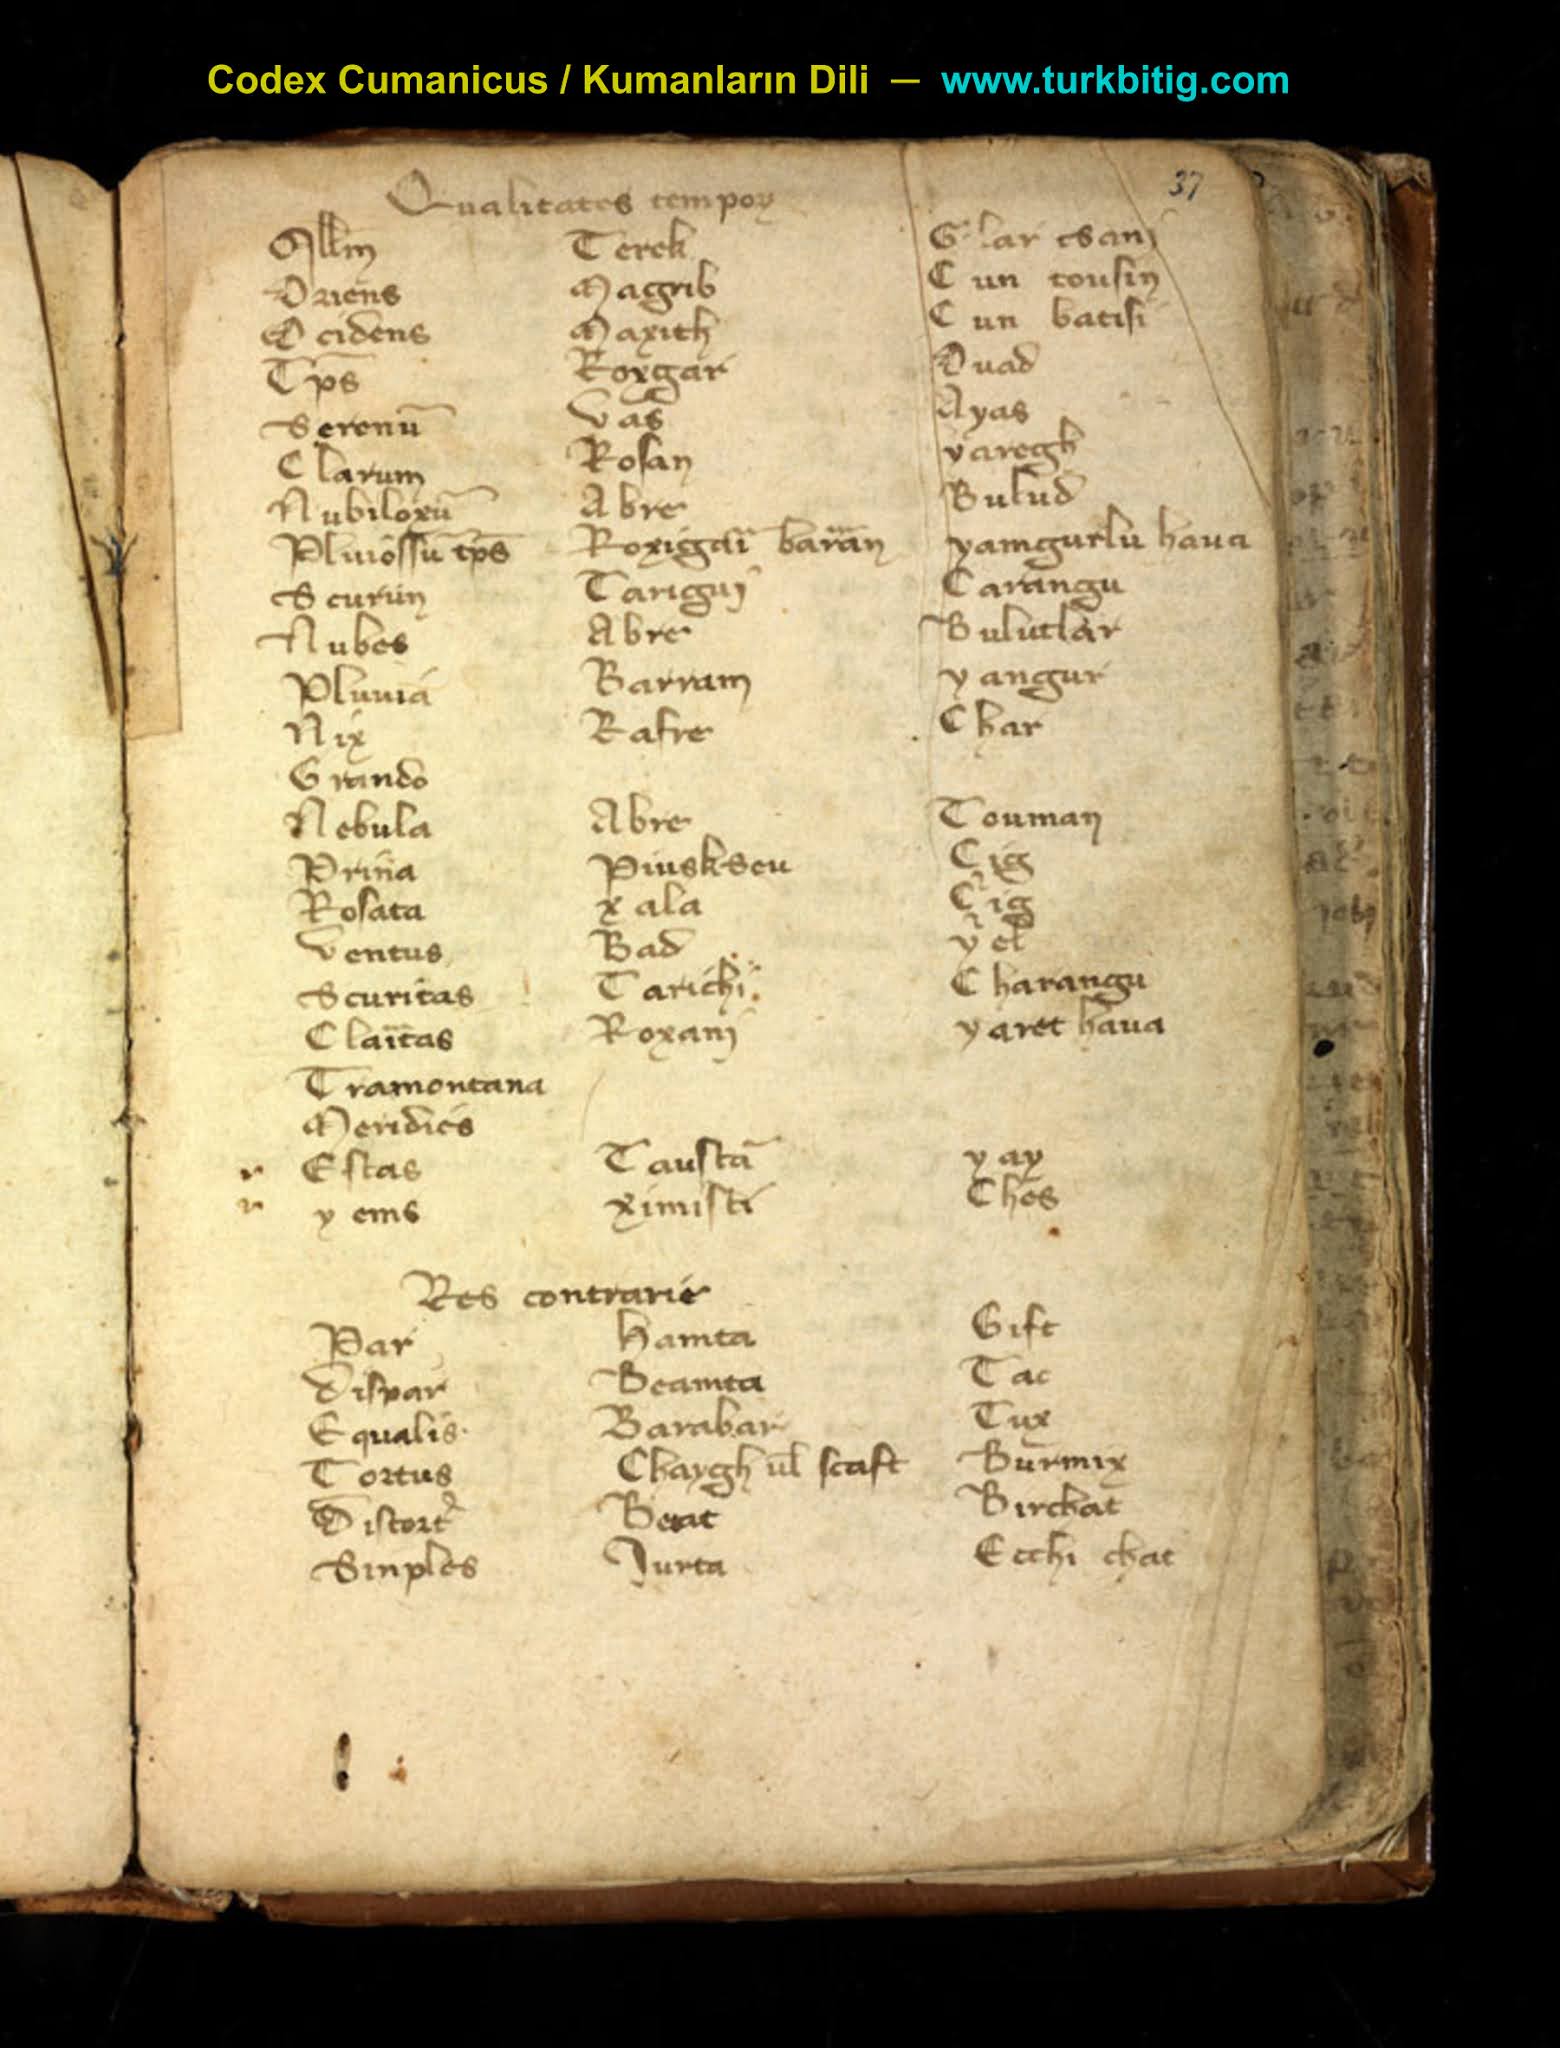 Codex Cumanicus / Kumanların Dili — www.turkbitig.com
37
Qualitates tempoꝝ
Terek
Oriens Magrib Cun tousin
Ocidens Maxith Cun batisi
Tp̄s Roxgar Ouad
Serenū Vas Ayas
Clarum Rosan yaregh
Nubiloxū Abre Bulud
Pluuiossū tp̄s barān yamgurlu haua
Scurun Tarigui Carangu
Nubes Abre Bulutlar
Pluuia Barram yangur
Nix Rafre Char
Grando
Nebula Abre Touman
Prina Piusk Cig
Rosata xala Cig
Ventus Bad yel
Scuritas Tarichi Charangu
Claītas Roxani yaret haua
Tramontana
Meridies
r Estas Taustā yay
r yems ximisti Ches
Res contrarie
Par Hamta Gift
Dispar Beamta Tac
Equalis Barabar Tux
Tortus Chaygh ul̄ scaft Burmix
Distort Beat Birchat
Sinples Jurta Ecchi chat